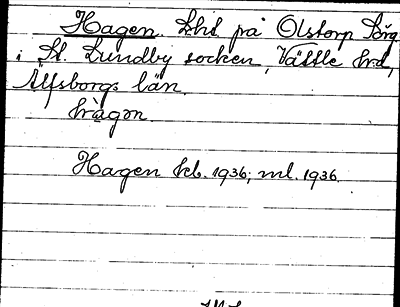 Hagen. Lht på Olstorp Sörg
i St. Lundby socken, Vättle hd,
Älfsborgs län.
hàgɷn.
Hagen kb. 1936; ml. 1936.